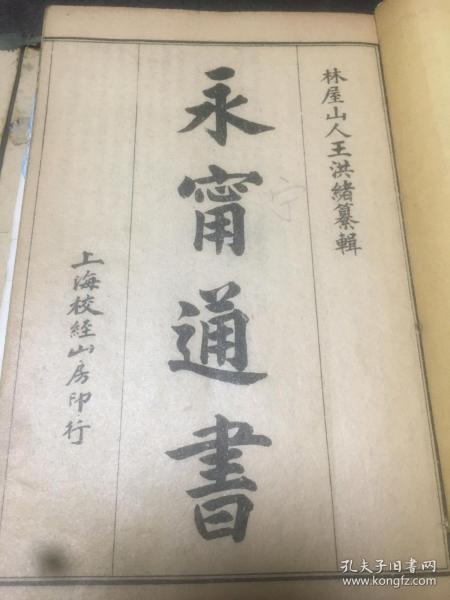 林屋山人王洪緒纂輯
永甯通書
宁
上海校經山房印行
孔夫子旧书网
www.kongfz.com